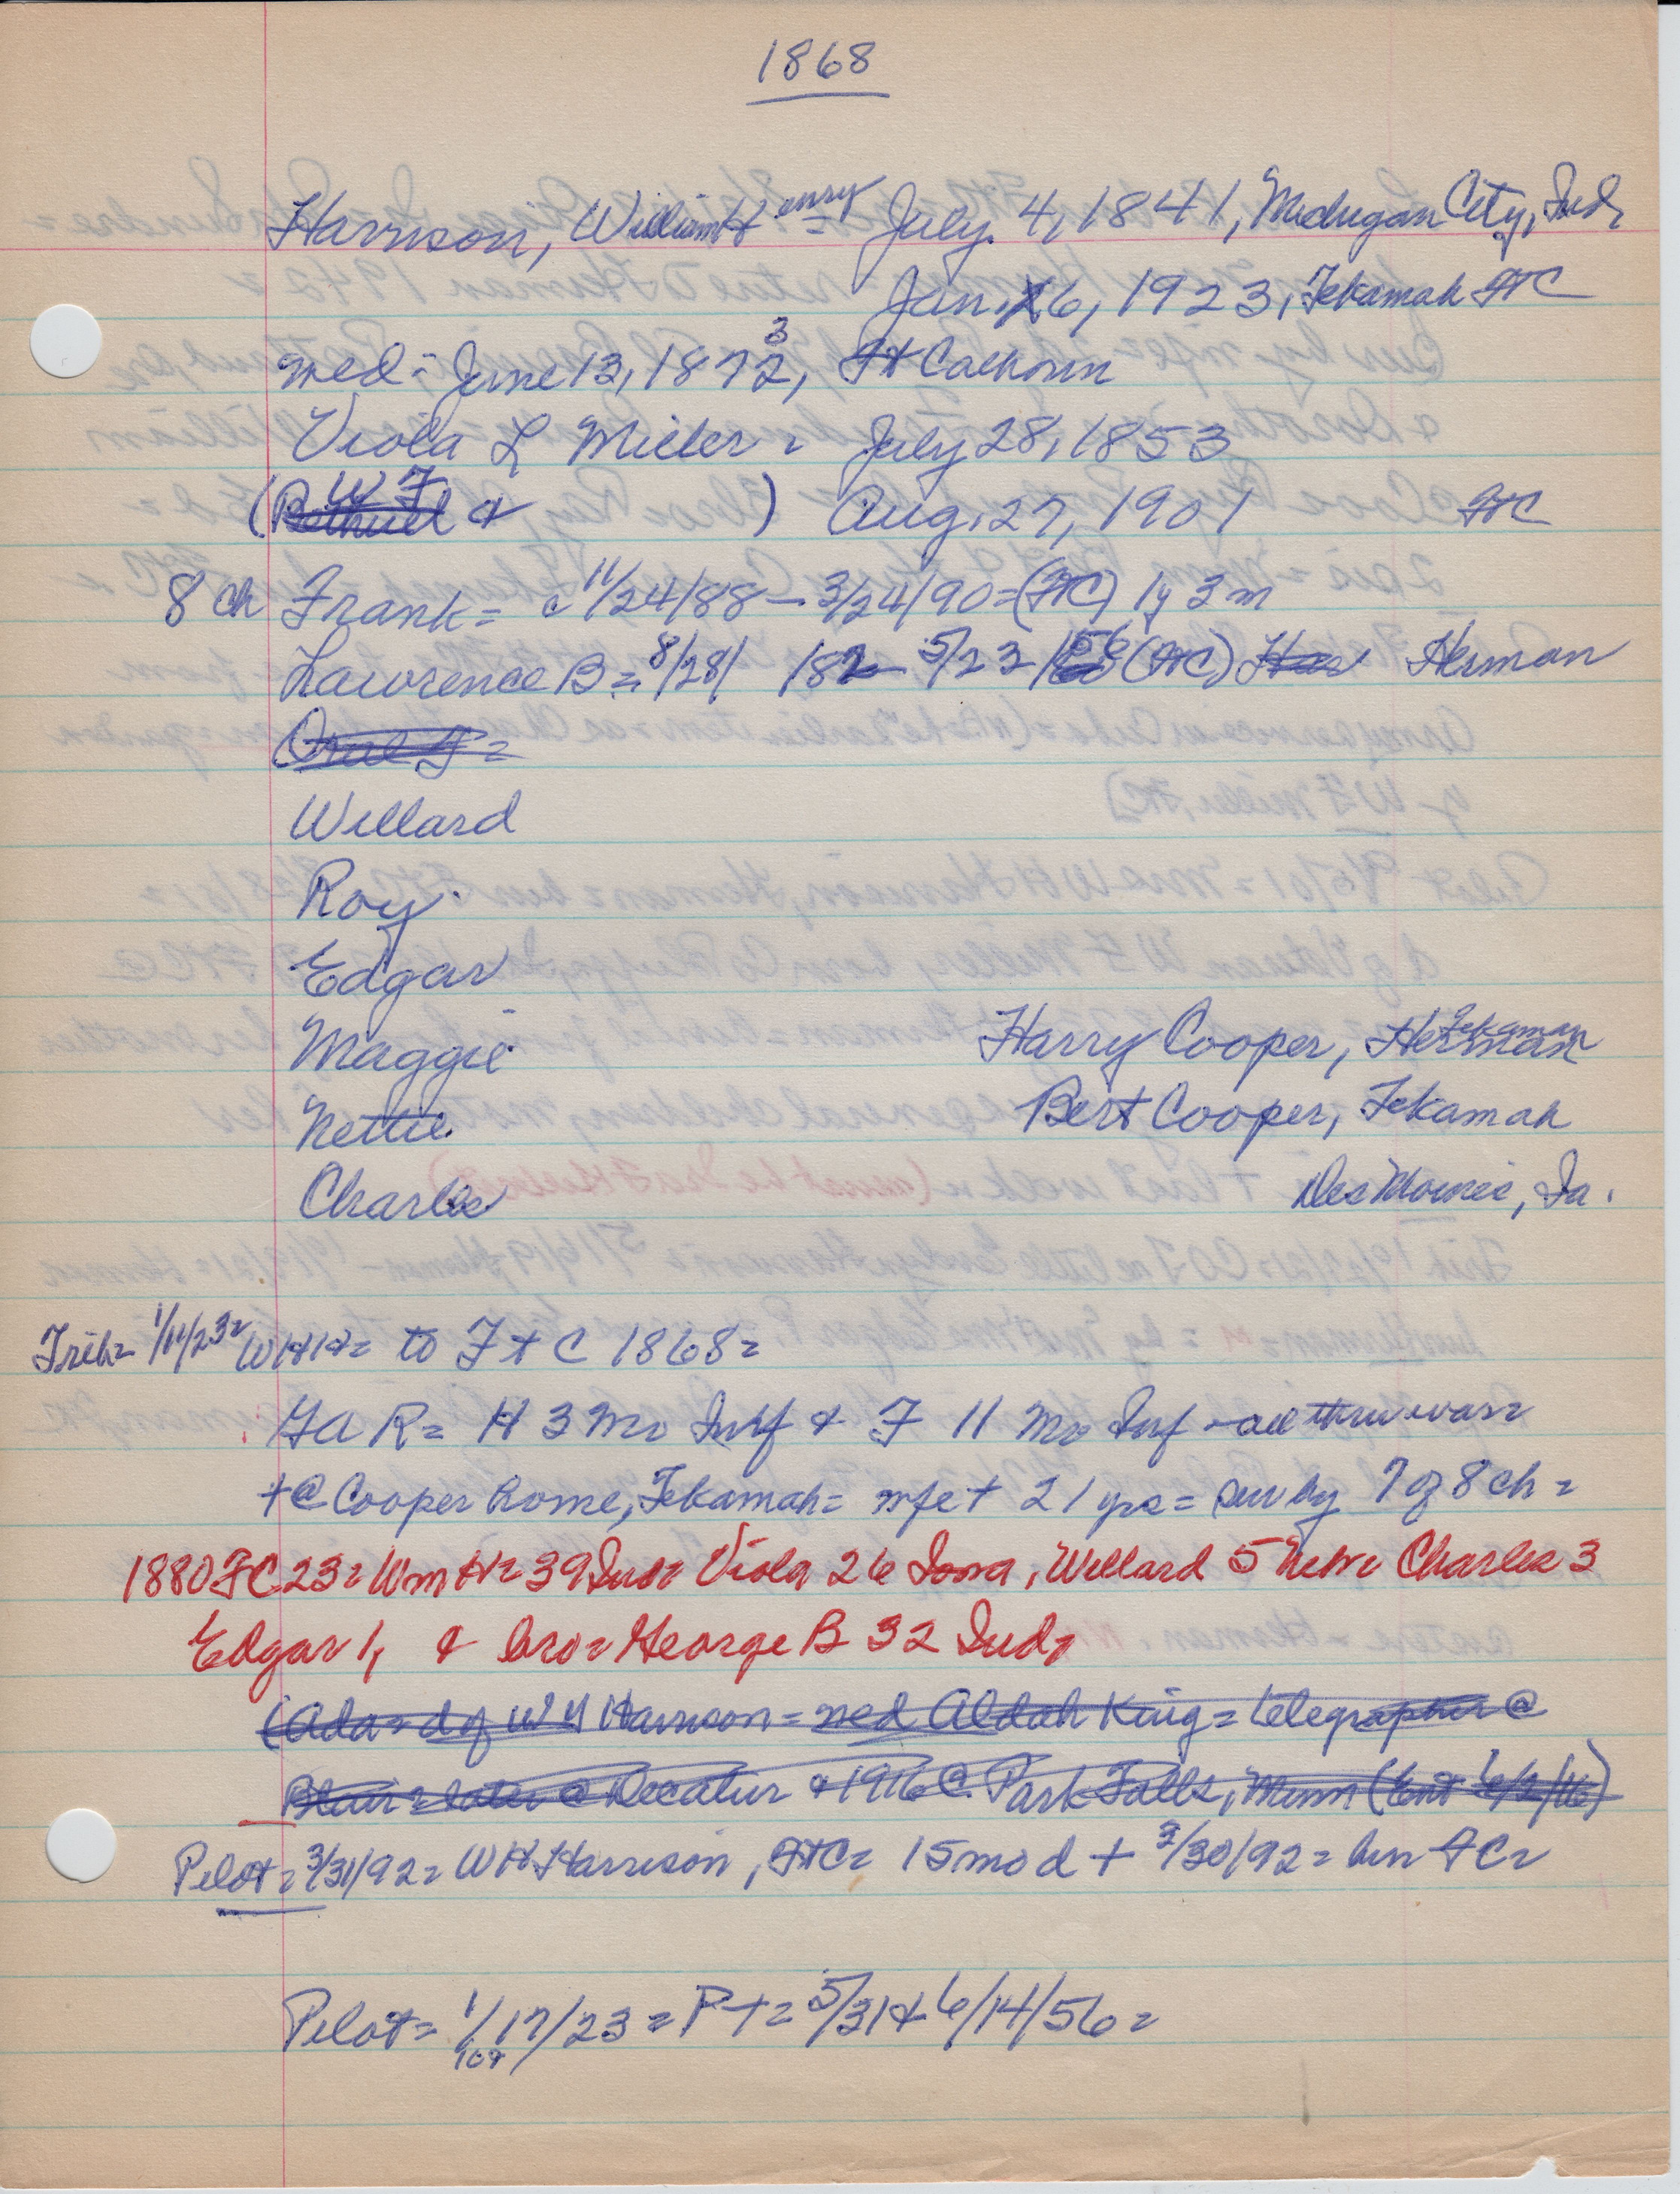 1868
Harrison, William Henry = July 4, 1841, Michigan City, Ind,
Jan. 6, 1923, Tekamah FtC
med = June 13, 1873, Ft Calhoun
Viola L Miller = July 28, 1853
(Bethuel W F & ) Aug. 27, 1901 FtC
8 ch Frank = c 11/24/88 - 3/24/90 = (FtC) 1y 3m
Lawrence B = 8/28/ /82 5/23/56 (FtC) Herman
Oral J =
Willard
Roy
Edgar
Maggie Harry Cooper, Herman Tekamah
Nettie Bert Cooper, Tekamah
Charles Des Moines, Ia.
Trib = 1/11/23 = WHH = to Ft C 1868 =
GAR = H 3 Mo Inf & F 11 Mo Inf - all thru war =
+ @ Cooper home, Tekamah = wife + 21 yrs = sur by 7 of 8 ch =
1880 FC 23 = Wm H = 39 Ind = Viola 26 Iowa, Willard 5 Nebr Charles 3
Edgar 1, & bro = George B 32 Ind,
(Ada = d of W H Harrison = med Aldah King = telegrapher @
Blair = later @ Decatur & 1916 @ Park Falls, Minn (Ent 6/2/16)
Pilot = 3/31/92 = WH Harrison, FtC = 15 mo d + 3/30/92 = bur FC =
Pilot = 1/17/23 = P + = 5/31 & 6/14/56 =